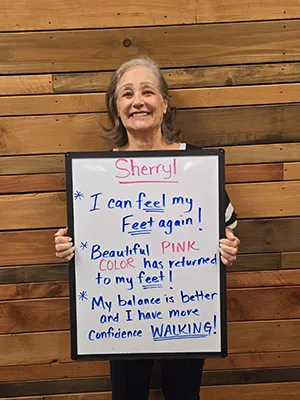 Sherryl
* I can feel my
Feet again!
* Beautiful PINK
COLOR has returned
to my feet!
* My balance is better
and I have more
Confidence WALKING!